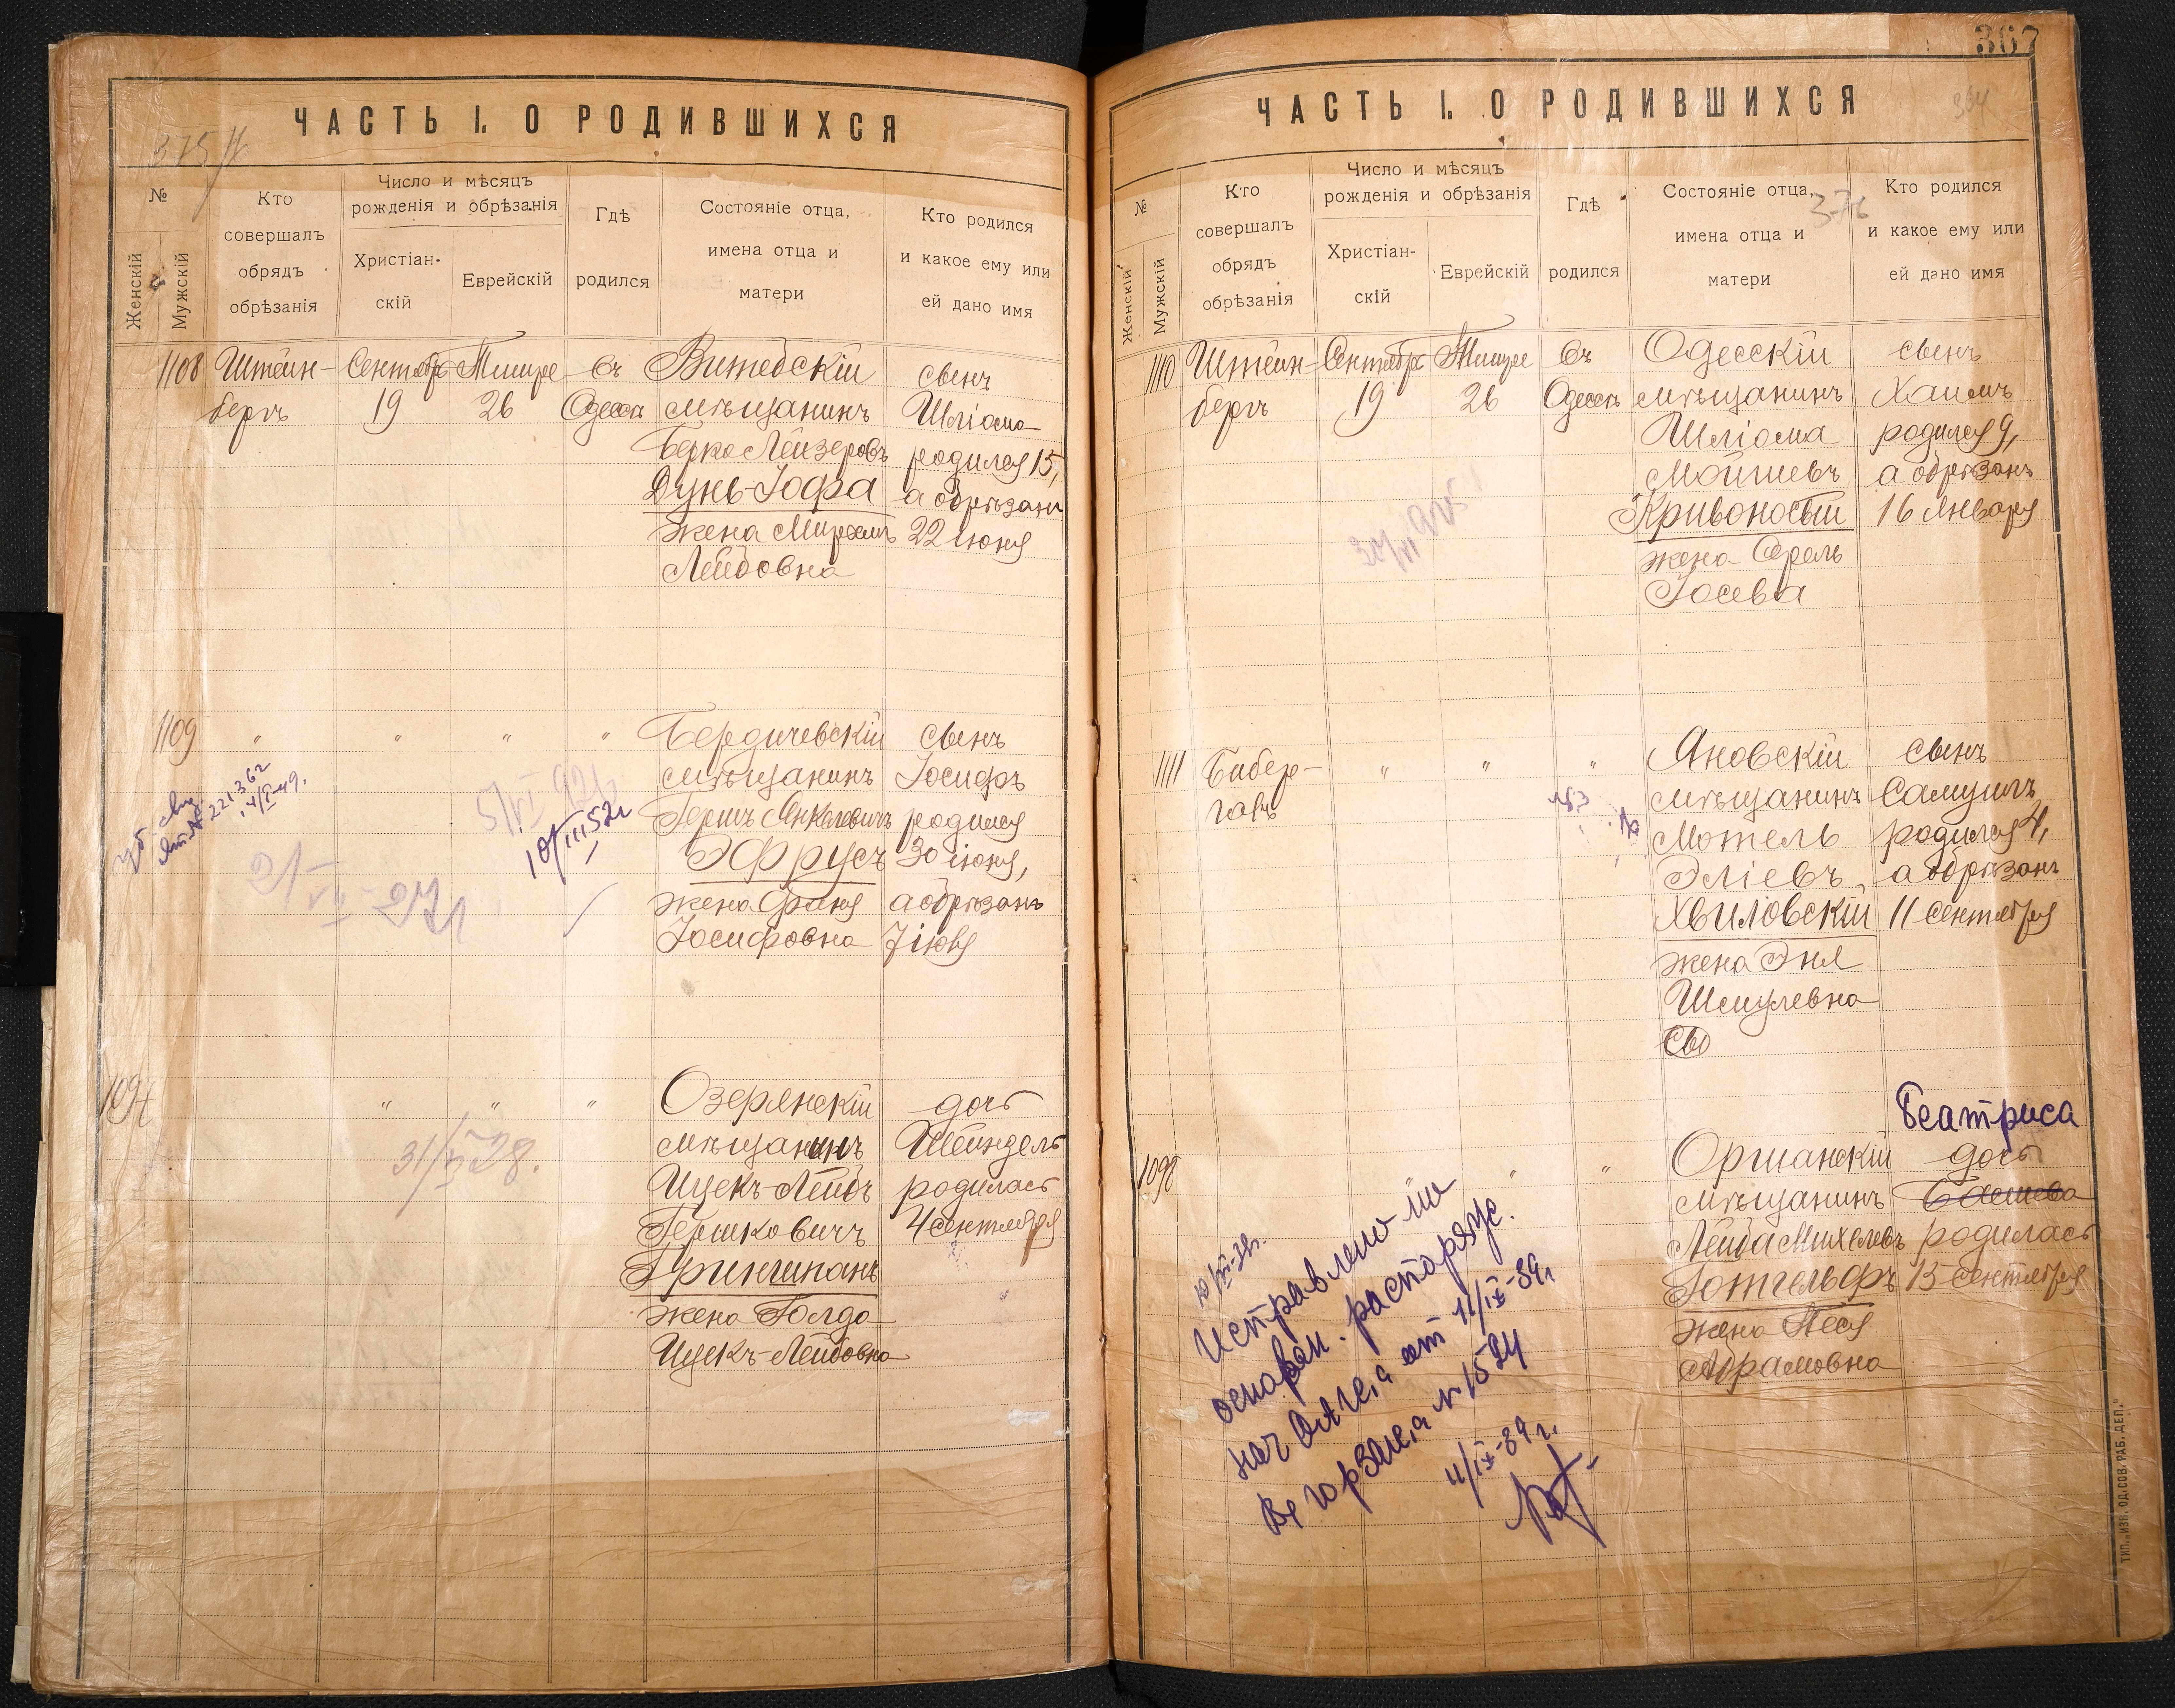 ЧАСТЬ I. О РОДИВШИХСЯ
№
Женскій
Мужскій
Кто
совершалъ
обрядъ
обрѣзанія
Число и мѣсяцъ
рожденія и обрѣзанія
Христіан-
скій
Еврейскій
Гдѣ
родился
Состояніе отца,
имена отца и
матери
Кто родился
и какое ему или
ей дано имя
1108
Штейн-
бергъ
Сентябрь
19
Тишре
26
Въ
Одессѣ
Витебскій
мѣщанинъ
Берко Лейзеровъ
Дунь-Іофа
жена
Лейбовна
сынъ
Шліома
родился 15,
а обрѣзанъ
22 іюня
1109
"
"
"
"
5/VI 92
10/III 52г
21/VI-27г
Бердичевскій
мѣщанинъ
Гершъ Янкелевичъ
Эфрусъ
жена Фаня
Іосифовна
сынъ
Іосифъ
родился
30 іюня,
а обрѣзанъ
7 іюля
1097
"
"
"
31/ 28.
Озерянскій
мѣщанинъ
Ицекъ-Лейбъ
Гершковичъ
Гриншпанъ
жена Голда
Ицекъ-Лейбовна
дочь
Шейндель
родилась
4 сентября
367
334
376
ЧАСТЬ I. О РОДИВШИХСЯ
№
Женскій
Мужскій
Кто
совершалъ
обрядъ
обрѣзанія
Число и мѣсяцъ
рожденія и обрѣзанія
Христіан-
скій
Еврейскій
Гдѣ
родился
Состояніе отца,
имена отца и
матери
Кто родился
и какое ему или
ей дано имя
1110
Штейн-
бергъ
Сентябрь
19
Тишре
26
Въ
Одессѣ
Одесскій
мѣщанинъ
Шліома
Мойшевъ
Кривоносый
жена Сроль
Іосева
сынъ
Хаимъ
родился 9,
а обрѣзанъ
16 января
1111
Бибер-
галъ
"
"
"
Яновскій
мѣщанинъ
Мотель
Эліевъ
Хвиловскій
жена Эня
Шмулевна
сынъ
Самуилъ
родился 4,
а обрѣзанъ
11 сентября
1098
"
"
Оршанскій
мѣщанинъ
Лейба Михелевъ
Готгельфъ
жена Песя
Абрамовна
Беатриса
дочь
Башева
родилась
13 сентября
Исправлено на
основан. распоряж.
нач ОАГС,а от 11/IX-39г
В горЗАГС,а N 1524
11/IX-39 г.
ТИП. „ИЗВ. ОД. СОВ. РАБ. ДЕП."